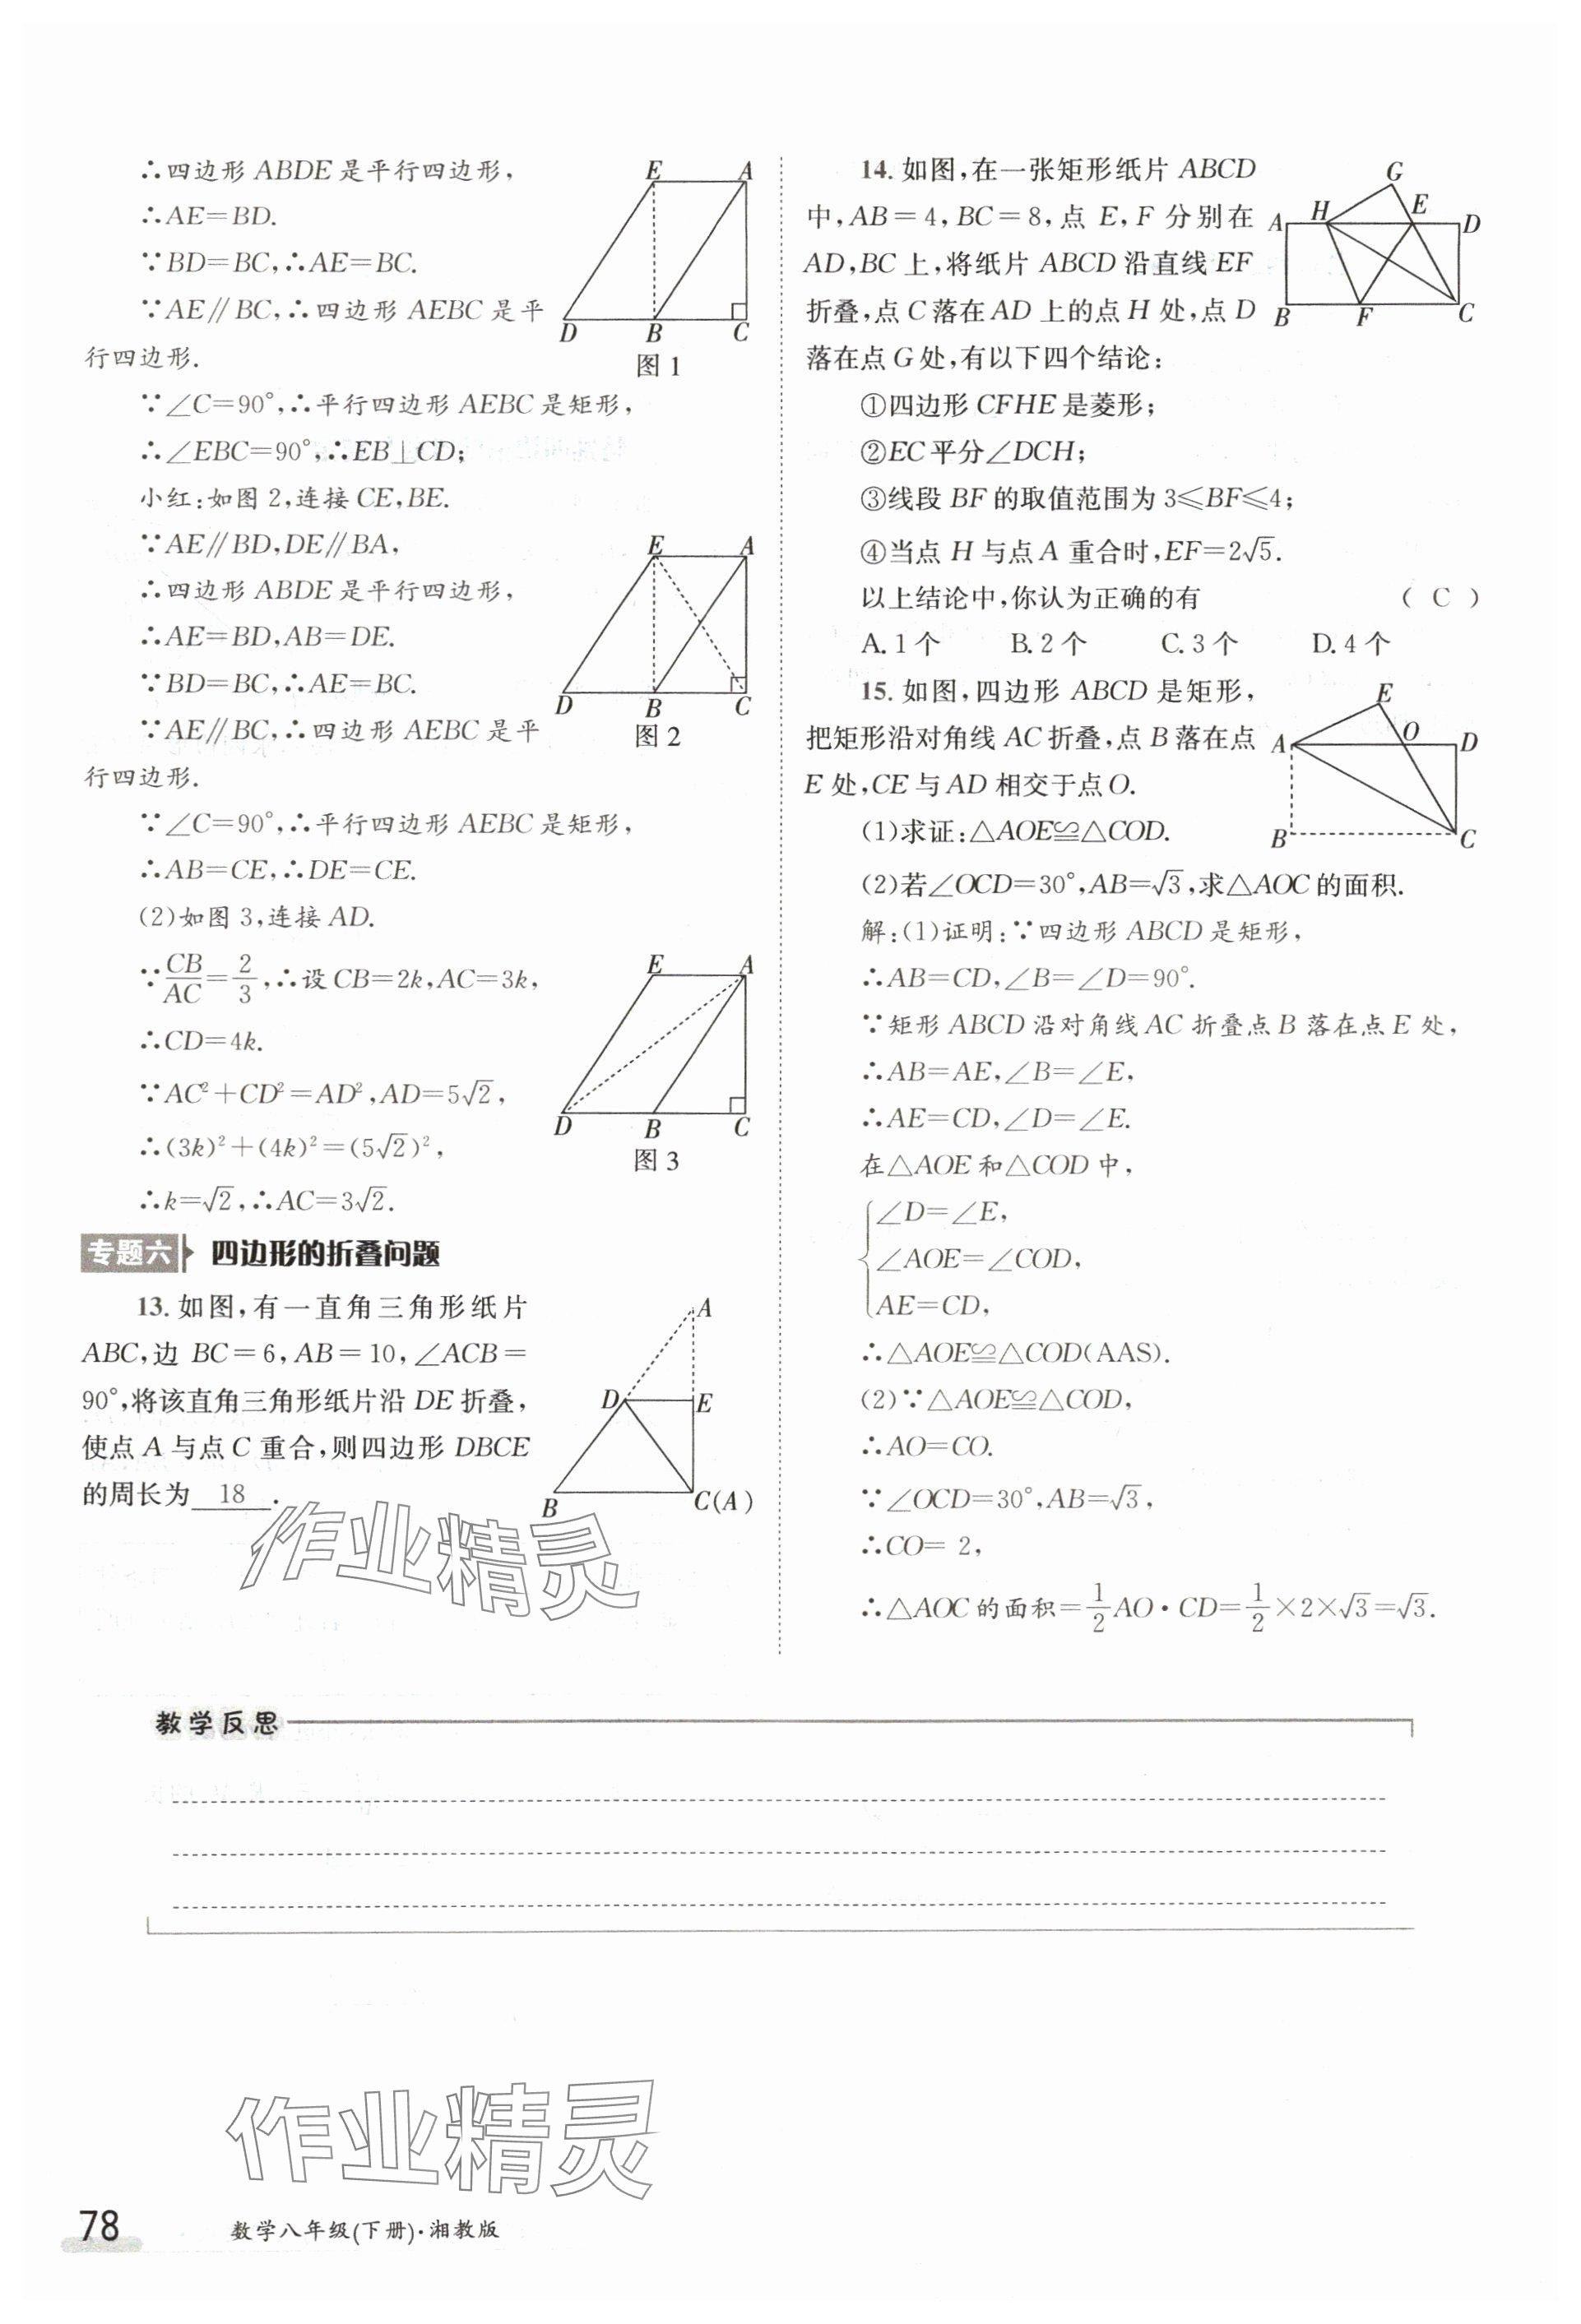 ∴四边形 ABDE 是平行四边形,
∴AE=BD.
∵BD=BC,∴AE=BC.
∵AE∥BC,∴四边形 AEBC 是平
行四边形.
E A
D B C
图 1
∵∠C=90°,∴平行四边形 AEBC 是矩形,
∴∠EBC=90°,∴EB⊥CD;
小红:如图 2,连接 CE,BE.
∵AE∥BD,DE∥BA,
∴四边形 ABDE 是平行四边形,
∴AE=BD,AB=DE.
∵BD=BC,∴AE=BC.
∵AE∥BC,∴四边形 AEBC 是平
行四边形.
E A
D B C
图 2
∵∠C=90°,∴平行四边形 AEBC 是矩形,
∴AB=CE,∴DE=CE.
(2)如图 3,连接 AD.
∵CB/AC=2/3,∴设 CB=2k,AC=3k,
∴CD=4k.
∵AC²+CD²=AD²,AD=5√2,
∴(3k)²+(4k)²=(5√2)²,
∴k=√2,∴AC=3√2.
E A
D B C
图 3
专题六 四边形的折叠问题
13. 如图,有一直角三角形纸片
ABC,边 BC=6,AB=10,∠ACB=
90°,将该直角三角形纸片沿 DE 折叠,
使点 A 与点 C 重合,则四边形 DBCE
的周长为 18 .
A
D E
B C(A)
作业精灵
14. 如图,在一张矩形纸片 ABCD
中,AB=4,BC=8,点 E,F 分别在
AD,BC 上,将纸片 ABCD 沿直线 EF
折叠,点 C 落在 AD 上的点 H 处,点 D
落在点 G 处,有以下四个结论:
G
A H E D
B F C
①四边形 CFHE 是菱形;
②EC 平分∠DCH;
③线段 BF 的取值范围为 3≤BF≤4;
④当点 H 与点 A 重合时,EF=2√5.
以上结论中,你认为正确的有 ( C )
A. 1 个 B. 2 个 C. 3 个 D. 4 个
15. 如图,四边形 ABCD 是矩形,
把矩形沿对角线 AC 折叠,点 B 落在点
E 处,CE 与 AD 相交于点 O.
E
A O D
B C
(1)求证:△AOE≌△COD.
(2)若∠OCD=30°,AB=√3,求△AOC 的面积.
解:(1)证明:∵四边形 ABCD 是矩形,
∴AB=CD,∠B=∠D=90°.
∵矩形 ABCD 沿对角线 AC 折叠点 B 落在点 E 处,
∴AB=AE,∠B=∠E,
∴AE=CD,∠D=∠E.
在△AOE 和△COD 中,
∠D=∠E,
∠AOE=∠COD,
AE=CD,
∴△AOE≌△COD(AAS).
(2)∵△AOE≌△COD,
∴AO=CO.
∵∠OCD=30°,AB=√3,
∴CO= 2,
∴△AOC 的面积=1/2AO·CD=1/2×2×√3=√3.
教学反思
作业精灵
78
数学八年级(下册)·湘教版